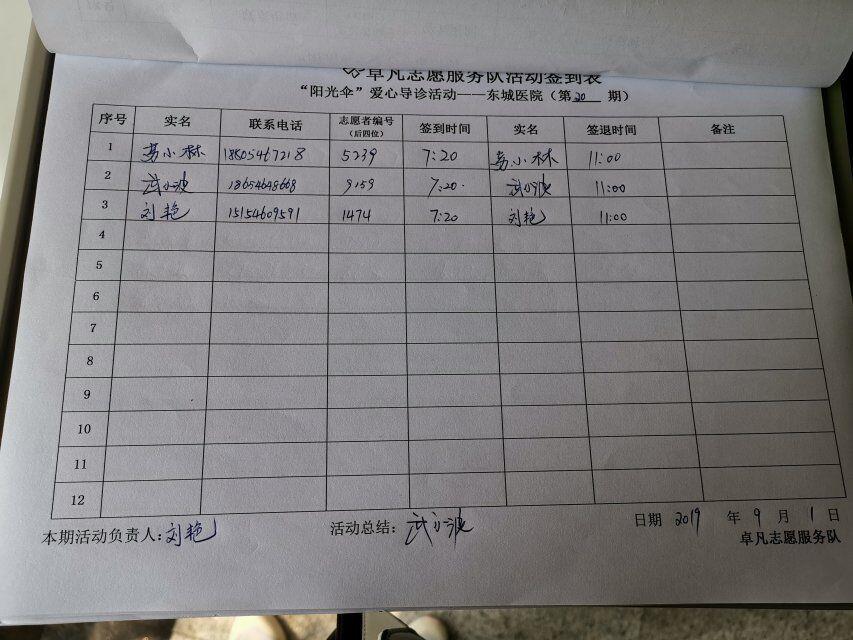 卓凡志愿服务队活动签到表
“阳光伞”爱心导诊活动——东城医院（第20期）
序号 实名 联系电话 志愿者编号（后四位） 签到时间 实名 签退时间 备注
1 小林 18805467218 5239 7:20 小林 11:00
2 武 波 18654648668 9159 7:20. 武 波 11:00
3 刘艳 15154609591 1474 7:20 刘艳 11:00
4
5
6
7
8
9
10
11
12
本期活动负责人：刘艳 活动总结：武 波 日期 2019 年 9 月 1 日
卓凡志愿服务队